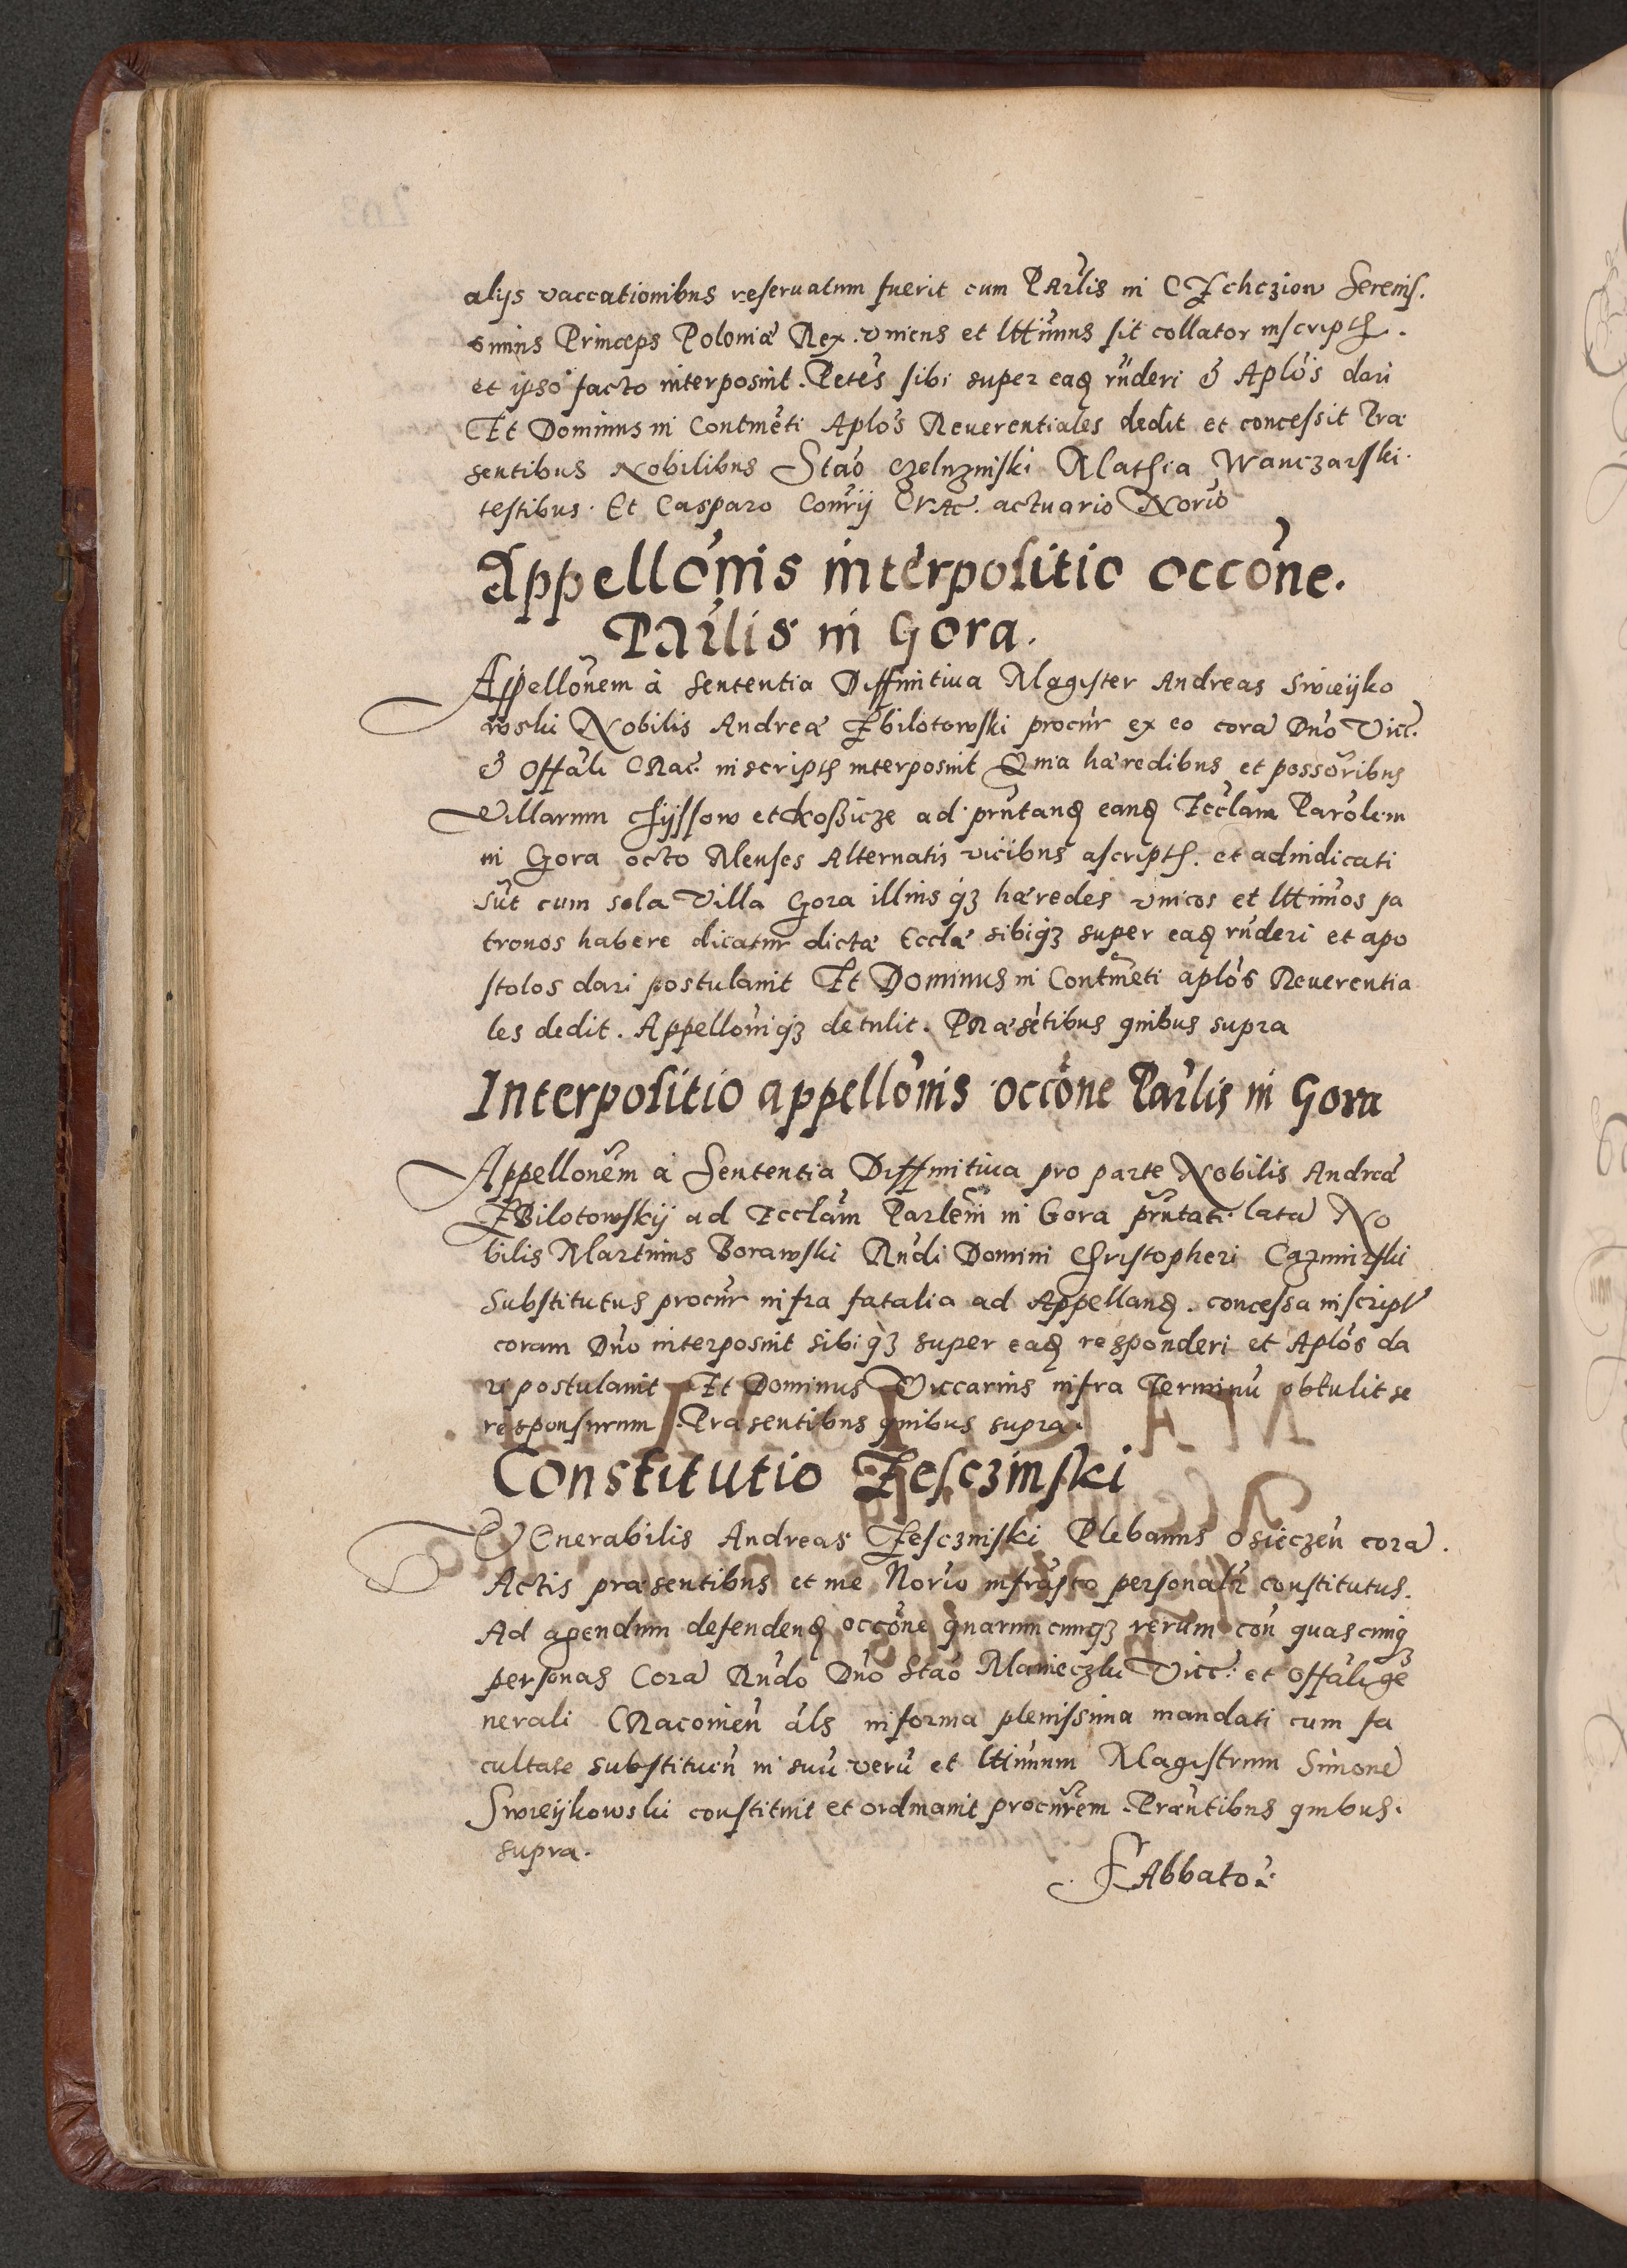 alijs vaccationibus reseruatum fuerit cum PArlis in Serenis.
simus Princeps Poloniæ Rex. vnicus et lttimus sit collator inscripth.
et ipso facto interposuit. Petes sibi super eaq rnderi & Aplos dari
Et Dominus in Contmeti Aplos Reuerentiales dedit et concessit Præ
sentibus Nobilibus Stao Mathia Wanczarski.
testibus. Et Casparo CrAc. actuario Norio
Appellonis interpositio occone.
PArlis in Gora.
Appellonem à sententia Diffinitiua Magister Andreas Swieijko
wski Nobilis Andreæ Zbilotowski procur ex eo cora Dno Vicc.
& Offali CRac. inscripth interposuit Quia hæredibus et possoribus
Villarum et ad prntanq eanq Ecclam Parolem
in Gora octo Menses Alternatis vicibus ascripth. et adiudicati
sut cum sola Villa Gora illius qz hæredes vnicos et lttimos pa
tronos habere dicatur dictæ Ecclæ sibiqz super eaq rnderi et apo
stolos dari postulauit Et Dominus in Contmeti aplos Reuerentia
les dedit. Appelloniqz detulit. PRæsetibus quibus supra
Interpositio appellonis occone Parlis in Gora
Appellonem à Sententia Diffinitiua pro parte Nobilis Andreæ
ZBilotowskij ad Ecclam Parlem in Gora prntati lata No
bilis Martinus Borawski Rndi Domini Christopheri Cazimirski
Substitutus procur infra fatalia ad Appellanq. concessa inscript
coram Dno interposuit sibiqz super eaq responderi et Aplos da
ri postulauit Et Dominus Viccarius infra Terminu obtulit se
responsurum. Præsentibus quibus supra.
Constitutio Zesczinski
VEnerabilis Andreas Zesczinski Plebanus Osieczen cora.
Actis præsentibus et me Norio infrasto personalr constitutus.
Ad agendum defendenq occone quarumcunqz rerum con quascunqz
personas Cora Rndo Dno Stao Manieczki Vicc. et Offali ge
nerali CRacouien als in forma plenissima mandati cum fa
cultate substituen in suu veru et lttimum Magistrum Simone
Swieijkowski constituit et ordinauit procurem. Præntibus quibus.
supra.
SAbbato